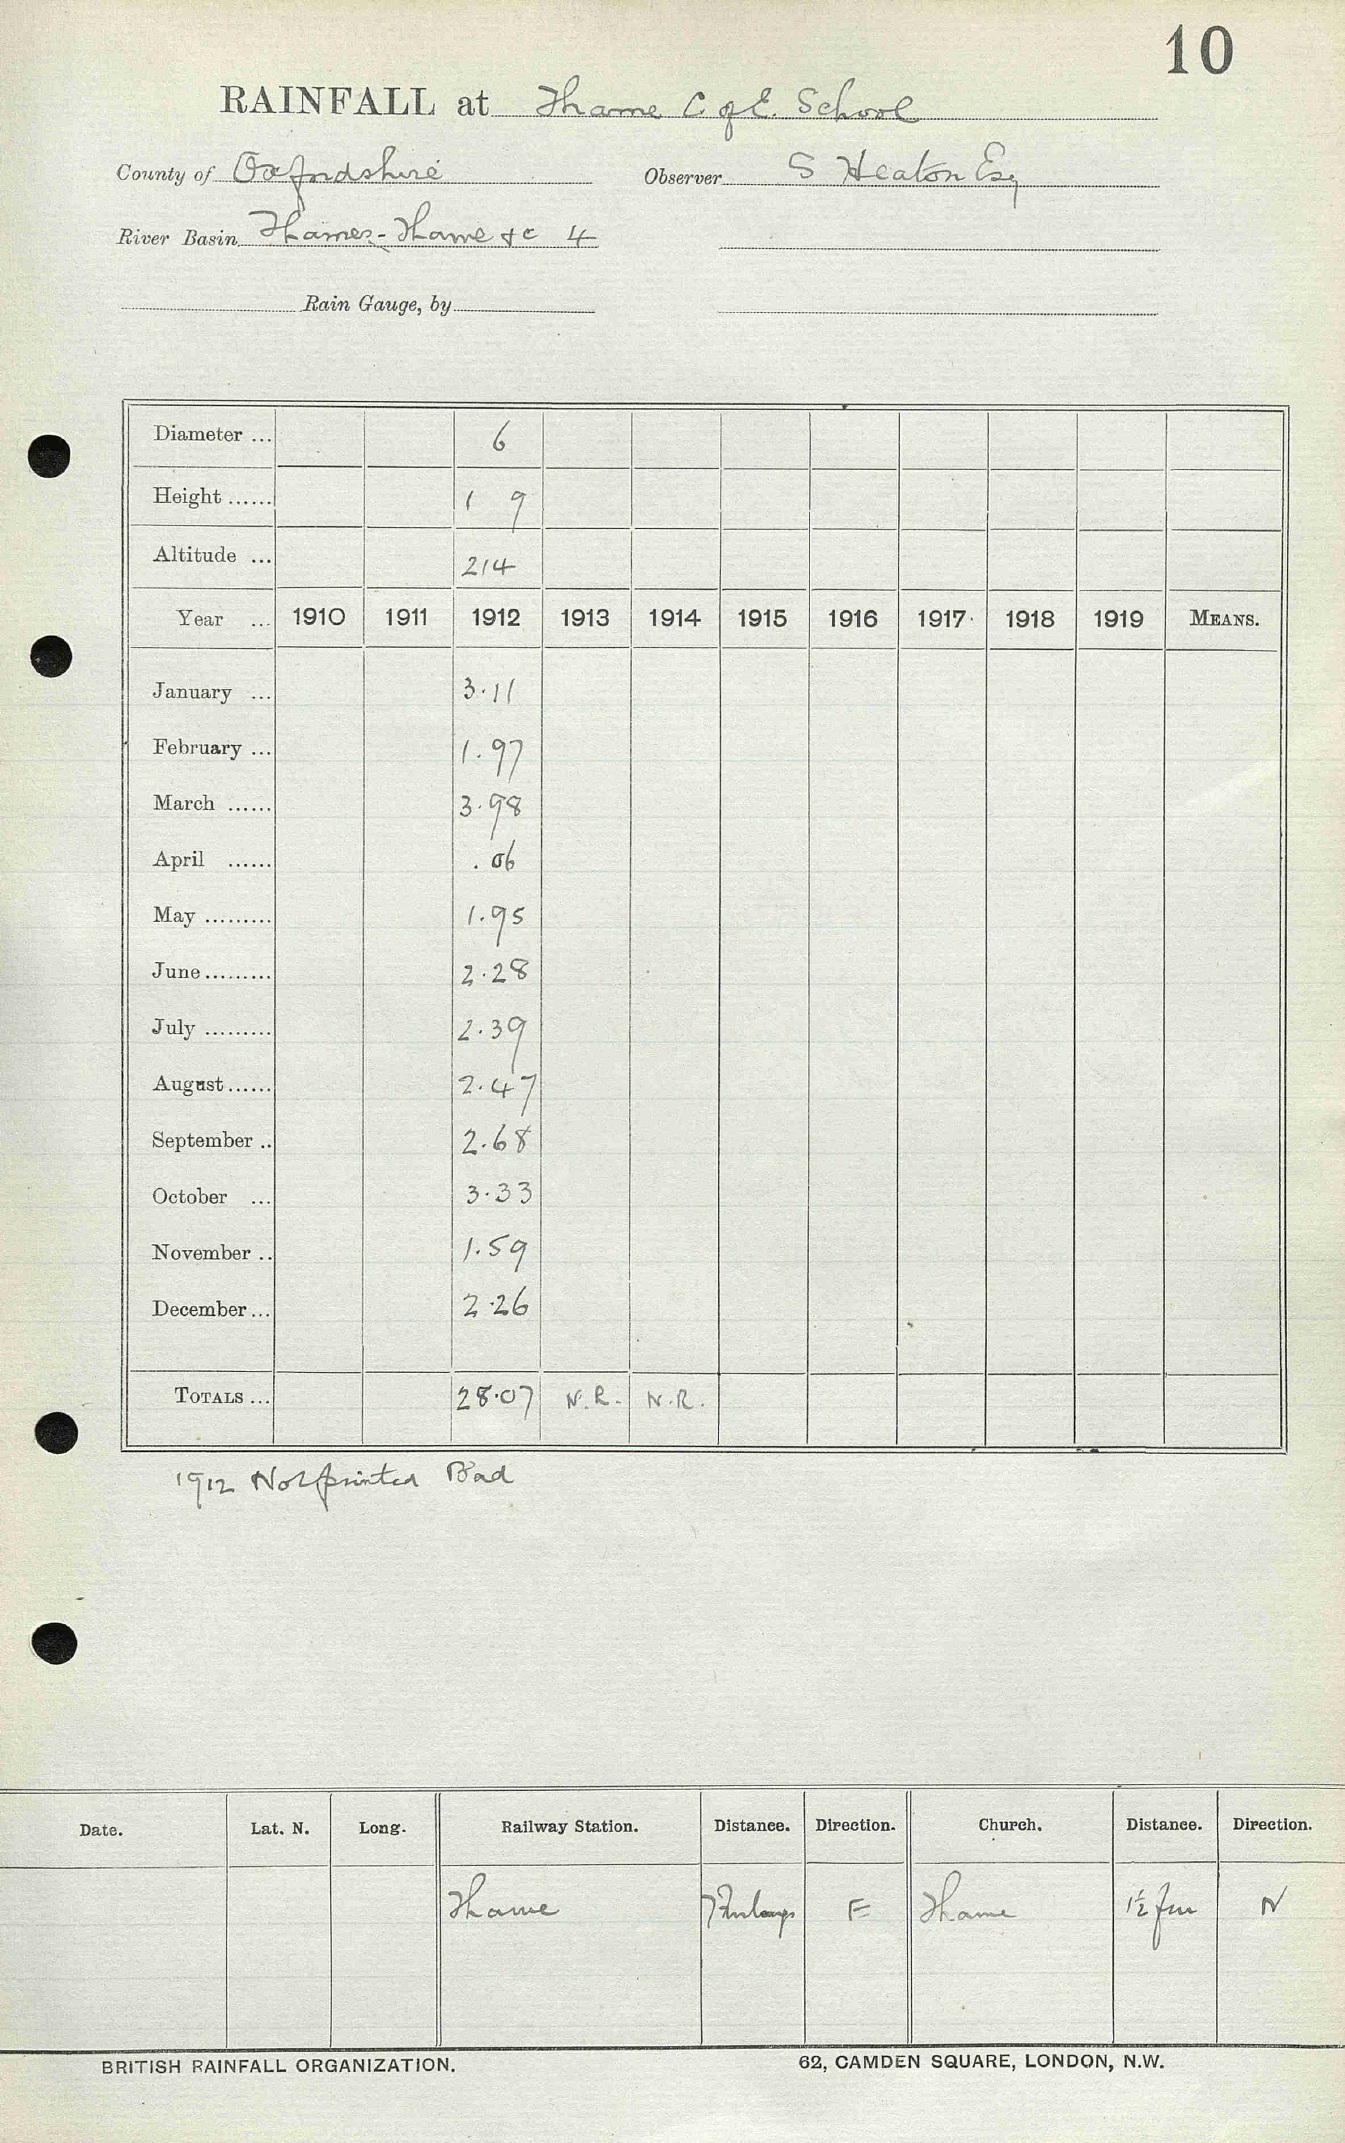 10
RAINFALL at Thame C of E. School
County of Oxfordshire Observer S Heaton Esq
River Basin Thames - Thame &c 4
Rain Gauge, by
Diameter ... 6
Height ...... 1 9
Altitude ... 214
Year ... 1910 1911 1912 1913 1914 1915 1916 1917 1918 1919 MEANS.
January ... 3.11
February ... 1.97
March ...... 3.98
April ...... .06
May ......... 1.95
June ......... 2.28
July ......... 2.39
August ...... 2.47
September .. 2.68
October ... 3.33
November .. 1.59
December ... 2.26
TOTALS ... 28.07 N.R. N.R.
1912 Not printed Bad
Date. Lat. N. Long. Railway Station. Distance. Direction. Church. Distance. Direction.
Thame 7 Furlongs E Thame 1½ fur N
BRITISH RAINFALL ORGANIZATION. 62, CAMDEN SQUARE, LONDON, N.W.